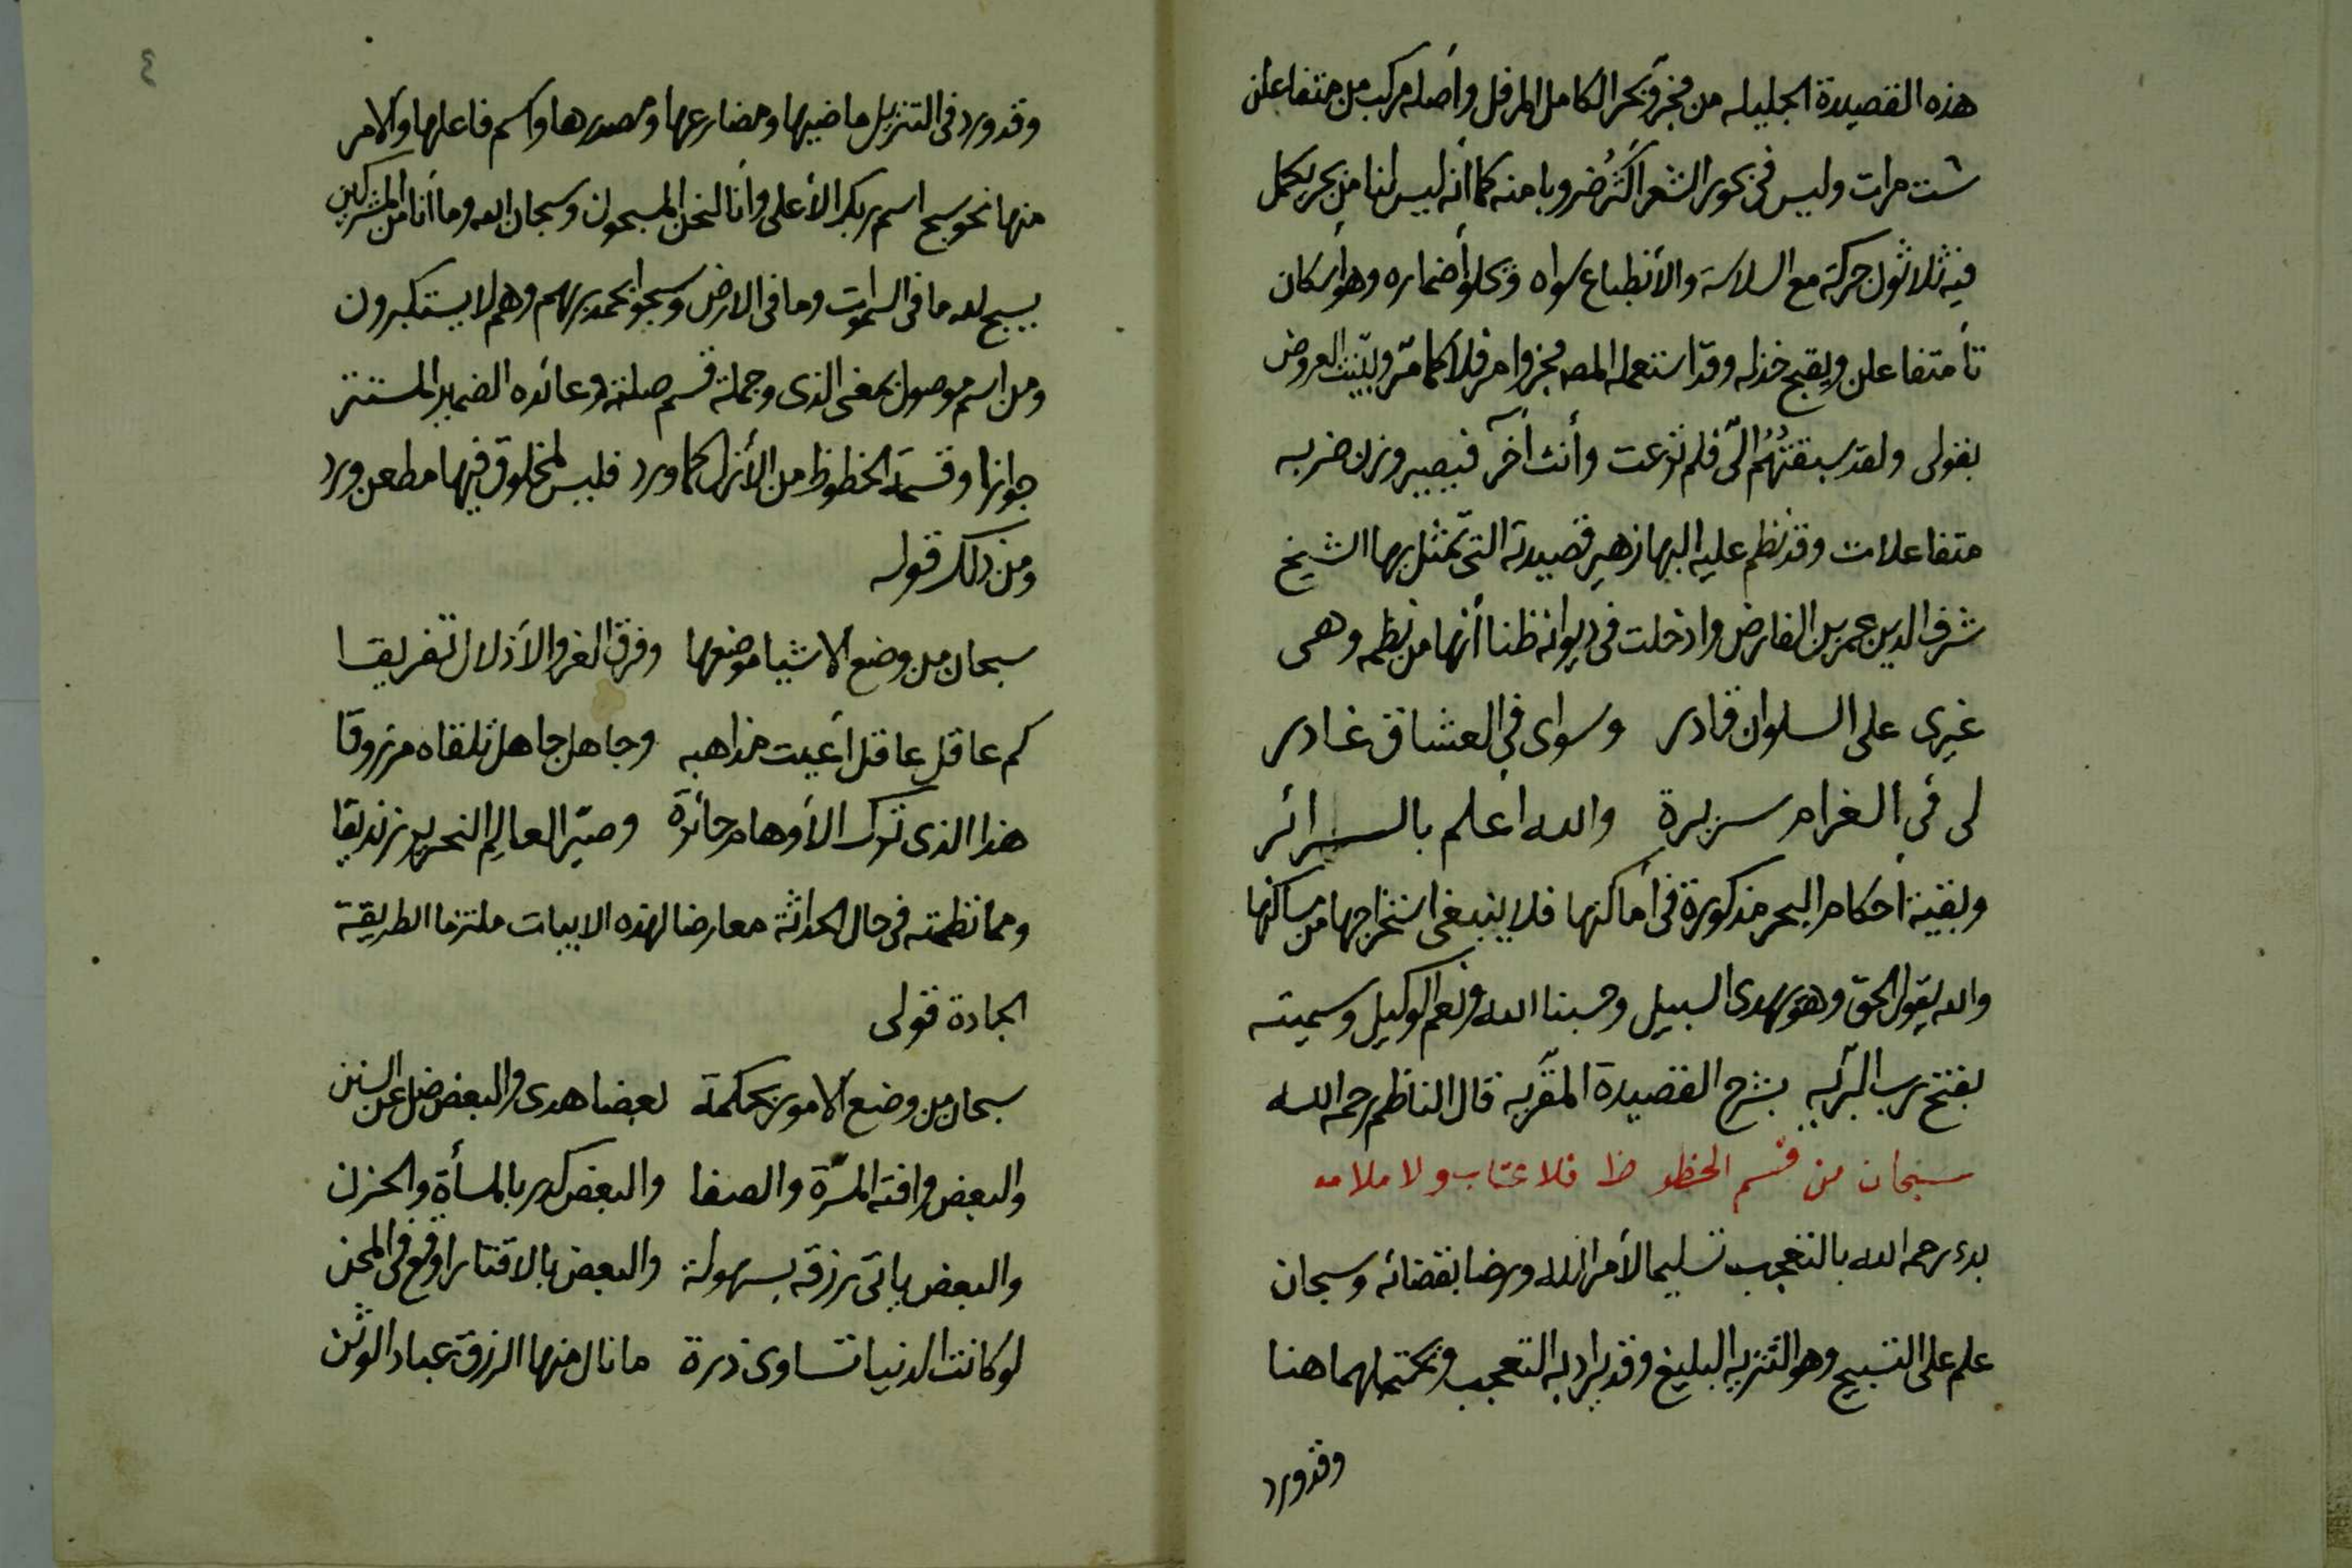 هذه القصيدة الجليله من مجزؤ بحر الكامل المرفل وأصله مركب من متفاعلن
ست مرات وليس في بحور الشعر أكثر ضروبا منه كما أنه ليس لنا من بحر يكمل
فيه ثلاثون حركة مع السلاسة والأنطباع سواه ويحلو أضماره وهو أسكان
تأ متفاعلن ويقبح خذله وقد استعمله المصـ مجزوا مرفلا كما مر وبيت العروض
بقولى ولقد سبقتهم الى فلم نزعت وأنت آخر فيصير وزن ضربه
متفاعلات وقد نظم عليه البها زهير قصيدته التى تمثل بها الشيخ
شرف الدين عمر بن الفارض وادخلت في ديوانه ظنا أنها من نظمه وهى
غيرى على السلوان قادر وسواى في العشاق غادر
لى في الغرام سريرة والله أعلم بالسرائر
وبقية أحكام البحر مذكورة في أماكنها فلا ينبغى استخراجها من مساكنها
والله يقول الحق وهو يهدى السبيل وحسبنا الله ونعم الوكيل وسميته
بفتح رب البريه بشرح القصيدة المقريه قال الناظم رحمه الله
سبحان من قسم الحظو ظ فلا عتاب ولا ملامه
بدء رحمه الله بالتعجب تسليما لأمر الله ورضا بقضائه وسبحان
علم على التسبيح وهو التنزيه البليغ وقد يراد به التعجب ويحتملهما هنا
وقد ورد
٤
وقد ورد في التنزيل ماضيها ومضارعها ومصدرها واسم فاعلها والامر
منها نحو سبح اسم ربك الأعلى وأنا لنحن المسبحون وسبحان الله وما أنا من المشركين
يسبح لله ما في السموات وما في الارض وسبحوا بحمد ربهم وهم لا يستكبرون
ومن اسم موصول بمعنى الذى وجملة قسم صلته وعائده الضمير المستتر
جوازا وقسمة الحظوظ من الأزل كما ورد فليس لمخلوق فيها مطعن ورد
ومن ذلك قوله
سبحان من وضع الاشيا موضعها وفرق العز والأذلال تفريقا
كم عاقل عاقل أعيت مذاهبه وجاهل جاهل تلقاه مرزوقا
هذا الذى ترك الأوهام حائرة وصير العالم النحرير زنديقا
ومما نظمته في حال الحداثة معارضا لهذه الابيات ملتزما الطريقة
الجادة قولى
سبحان من وضع الامور بحكمة بعضا هدى والبعض ضل عن السنن
والبعض وافته المسرة والصفا والبعض كدر بالمسأة والحزن
والبعض ياتى رزقه بسهولة والبعض بالاقتار اوقع في المحن
لو كانت الدنيا تساوى ذرة ما نال منها الرزق عباد الوثن